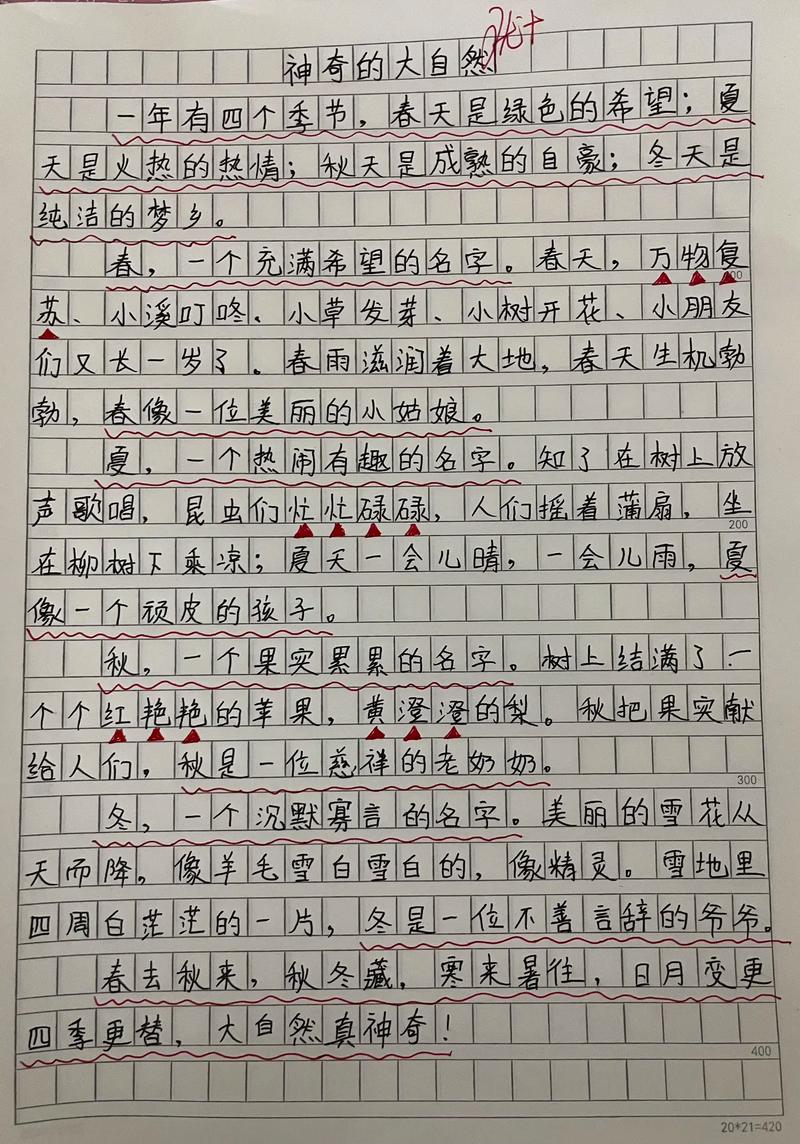 神奇的大自然
优+
一年有四个季节，春天是绿色的希望；夏
天是火热的热情；秋天是成熟的自豪；冬天是
纯洁的梦乡。
春，一个充满希望的名字。春天，万物复
100
苏、小溪叮咚、小草发芽、小树开花、小朋友
们又长一岁了。春雨滋润着大地，春天生机勃
勃，春像一位美丽的小姑娘。
夏，一个热闹有趣的名字。知了在树上放
声歌唱，昆虫们忙忙碌碌，人们摇着蒲扇，坐
200
在柳树下乘凉；夏天一会儿晴，一会儿雨，夏
像一个顽皮的孩子。
秋，一个果实累累的名字。树上结满了一
个个红艳艳的苹果，黄澄澄的梨。秋把果实献
给人们，秋是一位慈祥的老奶奶。
300
冬，一个沉默寡言的名字。美丽的雪花从
天而降。像羊毛雪白雪白的，像精灵。雪地里
四周白茫茫的一片，冬是一位不善言辞的爷爷。
春去秋来，秋冬藏，寒来暑往，日月变更
四季更替，大自然真神奇！
400
20*21=420